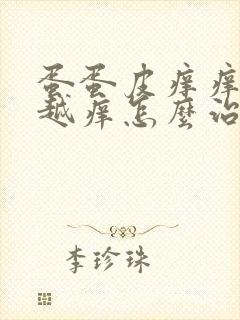 蛋蛋皮痒痒
越痒怎麼治
李珍珠